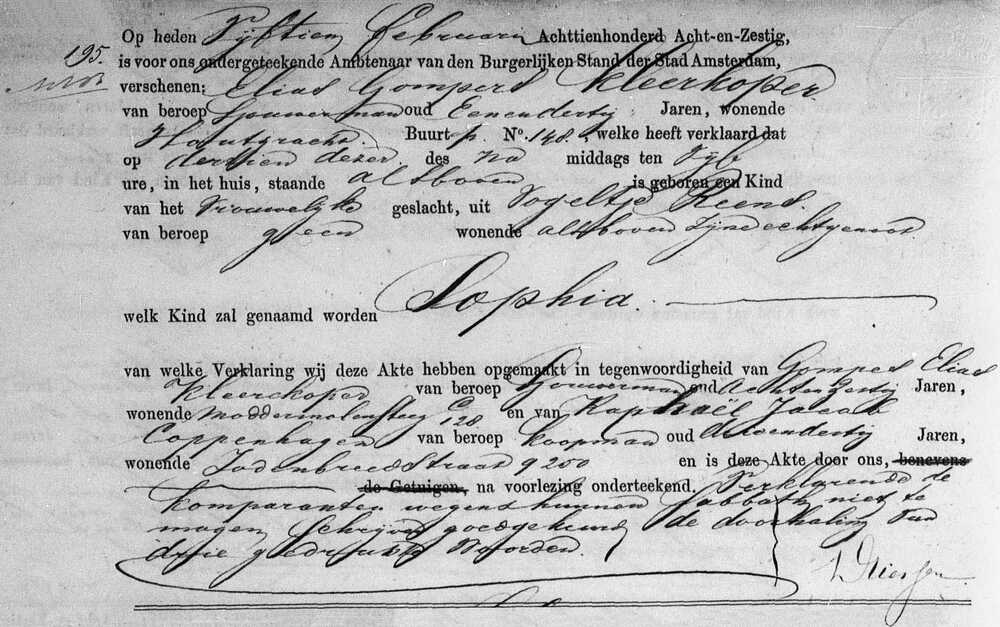 195.
Op heden Vyftien Februarij Achttienhonderd Acht-en-Zestig,
is voor ons ondergeteekende Ambtenaar van den Burgerlijken Stand der Stad Amsterdam,
verschenen: Elias Gompers Kleerkoper
van beroep Sjouwerman oud Eenendertig Jaren, wonende
Houtgracht Buurt p. No. 148, welke heeft verklaard dat
op dertien dezer des na middags ten Vyf
ure, in het huis, staande alsboven is geboren een Kind
van het Vrouwelijke geslacht, uit Vogeltje Keens.
van beroep geen wonende alsboven zyne echtgenoot
welk Kind zal genaamd worden Sophia
van welke Verklaring wij deze Akte hebben opgemaakt in tegenwoordigheid van Gompes Elias
Kleerkoper van beroep Sjouwerman oud Achtenzestig Jaren,
wonende Moddermolensteeg C 128 en van Raphaël Jacob
Coppenhagen van beroep Koopman oud Jaren,
wonende Jodenbreedstraat q 200 en is deze Akte door ons, benevens
de Getuigen, na voorlezing onderteekend. Verklarende de
Komparanten wegens hunnen Sabbath niet te
mogen schrijven goedgekeurd de doorhaling van
drie gedrukte Woorden.